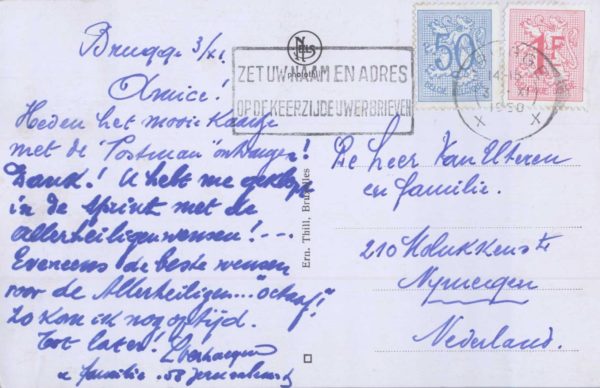 Brugge 3/XI.
Amice!
Heden het mooie kaartje
met de "Postman" ontvangen!
Dank! U hebt me geklopt
in de sprint met de
allerheiligenwensen!---
Eveneens de beste wensen
voor de Allerheiligen..."octaaf"!
Zo kom ik nog op tijd.
Tot later!
& familie. 58
NELS
photothill
ZET UW NAAM EN ADRES
OP DE KEERZIJDE UWER BRIEVEN
50
1F
BELGIE
BRUGGE
14-15
3 - XI
1950
X X
Ern. Thill, Bruxelles
De Heer Van Uteren
en familie.
210 Molukkenstr
Nijmegen
Nederland.